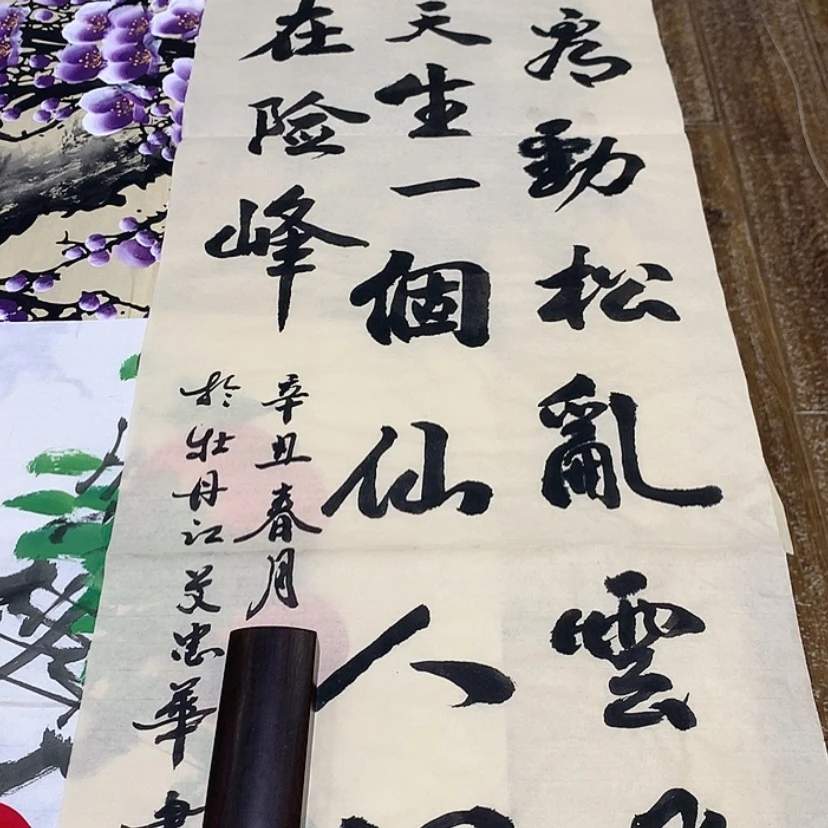 看勁松亂雲
天生一個仙人
在險峰
辛丑春月
於牡丹江艾忠華書